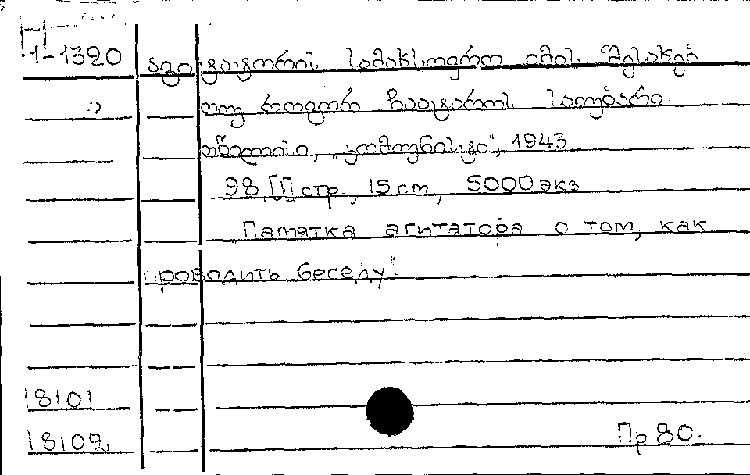 1-1320 აგიტატორის სამახსოვრო იმის შესახებ
თუ როგორ ჩაატაროს საუბარი
თბილისი, „კომუნისტი“, 1943
98, [1] стр., 15 см, 5000 экз
Памятка агитатора о том, как
проводить беседу.
18101
18102,
Пр 80.